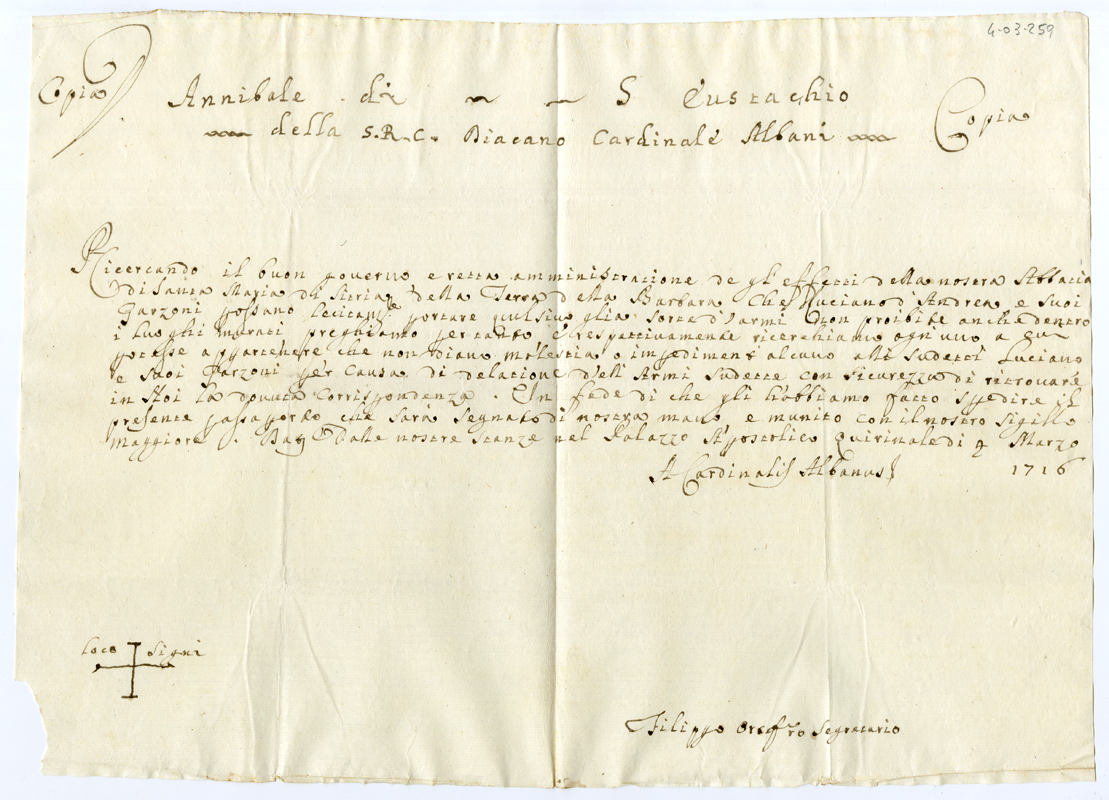 4-03-259
Copia Annibale di S Eustachio Copia
della S.R.C. Diacano Cardinale Albani
Ricercando il buon governo e retta amministratione de gl'effetti della nostra Abbatia
di Santa Maria di Sitria della Terra della Barbara Che Luciano d'Andrea e suoi
Garzoni possano portare qualsivoglia sorte d'armi non proibite anche dentro
i luoghi murati preghiamo pertanto e respettivamente ricerchiamo ogn'uno a cui
potesse appartenere che non diano molestia o impediment' alcuno alli sudetti Luciano
e suoi Garzoni per causa di delatione dell'Armi sudette con sicurezza di ritrovare
in Noi la dovuta corrispondenza. In fede di che gli habbiamo fatto spedire il
presente passaporto che sarà segnato di nostra mano e munito con il nostro sigillo
maggiore. Dalle nostre stanze nel Palazzo Apostolico Quirinale di 9 Marzo
A Cardinalis Albanus 1716
Loco Signi
Filippo Segretario